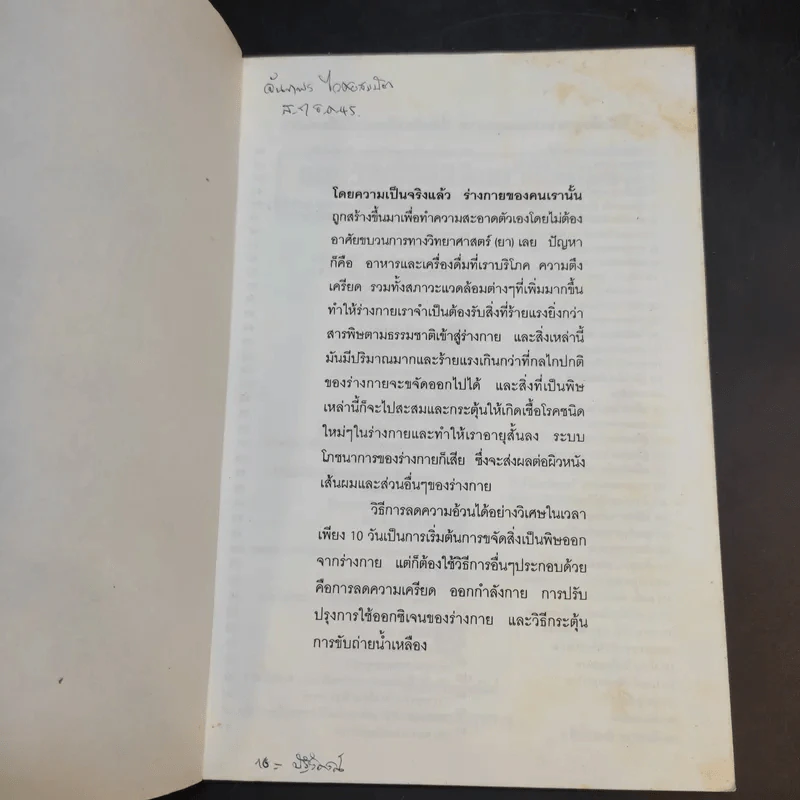 ส. 7 ธ.ค. 45.
โดยความเป็นจริงแล้ว ร่างกายของคนเรานั้น
ถูกสร้างขึ้นมาเพื่อทำความสะอาดตัวเองโดยไม่ต้อง
อาศัยขบวนการทางวิทยาศาสตร์ (ยา) เลย ปัญหา
ก็คือ อาหารและเครื่องดื่มที่เราบริโภค ความตึง
เครียด รวมทั้งสภาวะแวดล้อมต่างๆที่เพิ่มมากขึ้น
ทำให้ร่างกายเราจำเป็นต้องรับสิ่งที่ร้ายแรงยิ่งกว่า
สารพิษตามธรรมชาติเข้าสู่ร่างกาย และสิ่งเหล่านี้
มันมีปริมาณมากและร้ายแรงเกินกว่าที่กลไกปกติ
ของร่างกายจะขจัดออกไปได้ และสิ่งที่เป็นพิษ
เหล่านี้ก็จะไปสะสมและกระตุ้นให้เกิดเชื้อโรคชนิด
ใหม่ๆในร่างกายและทำให้เราอายุสั้นลง ระบบ
โภชนาการของร่างกายก็เสีย ซึ่งจะส่งผลต่อผิวหนัง
เส้นผมและส่วนอื่นๆของร่างกาย
วิธีการลดความอ้วนได้อย่างวิเศษในเวลา
เพียง 10 วันเป็นการเริ่มต้นการขจัดสิ่งเป็นพิษออก
จากร่างกาย แต่ก็ต้องใช้วิธีการอื่นๆประกอบด้วย
คือการลดความเครียด ออกกำลังกาย การปรับ
ปรุงการใช้ออกซิเจนของร่างกาย และวิธีกระตุ้น
การขับถ่ายน้ำเหลือง